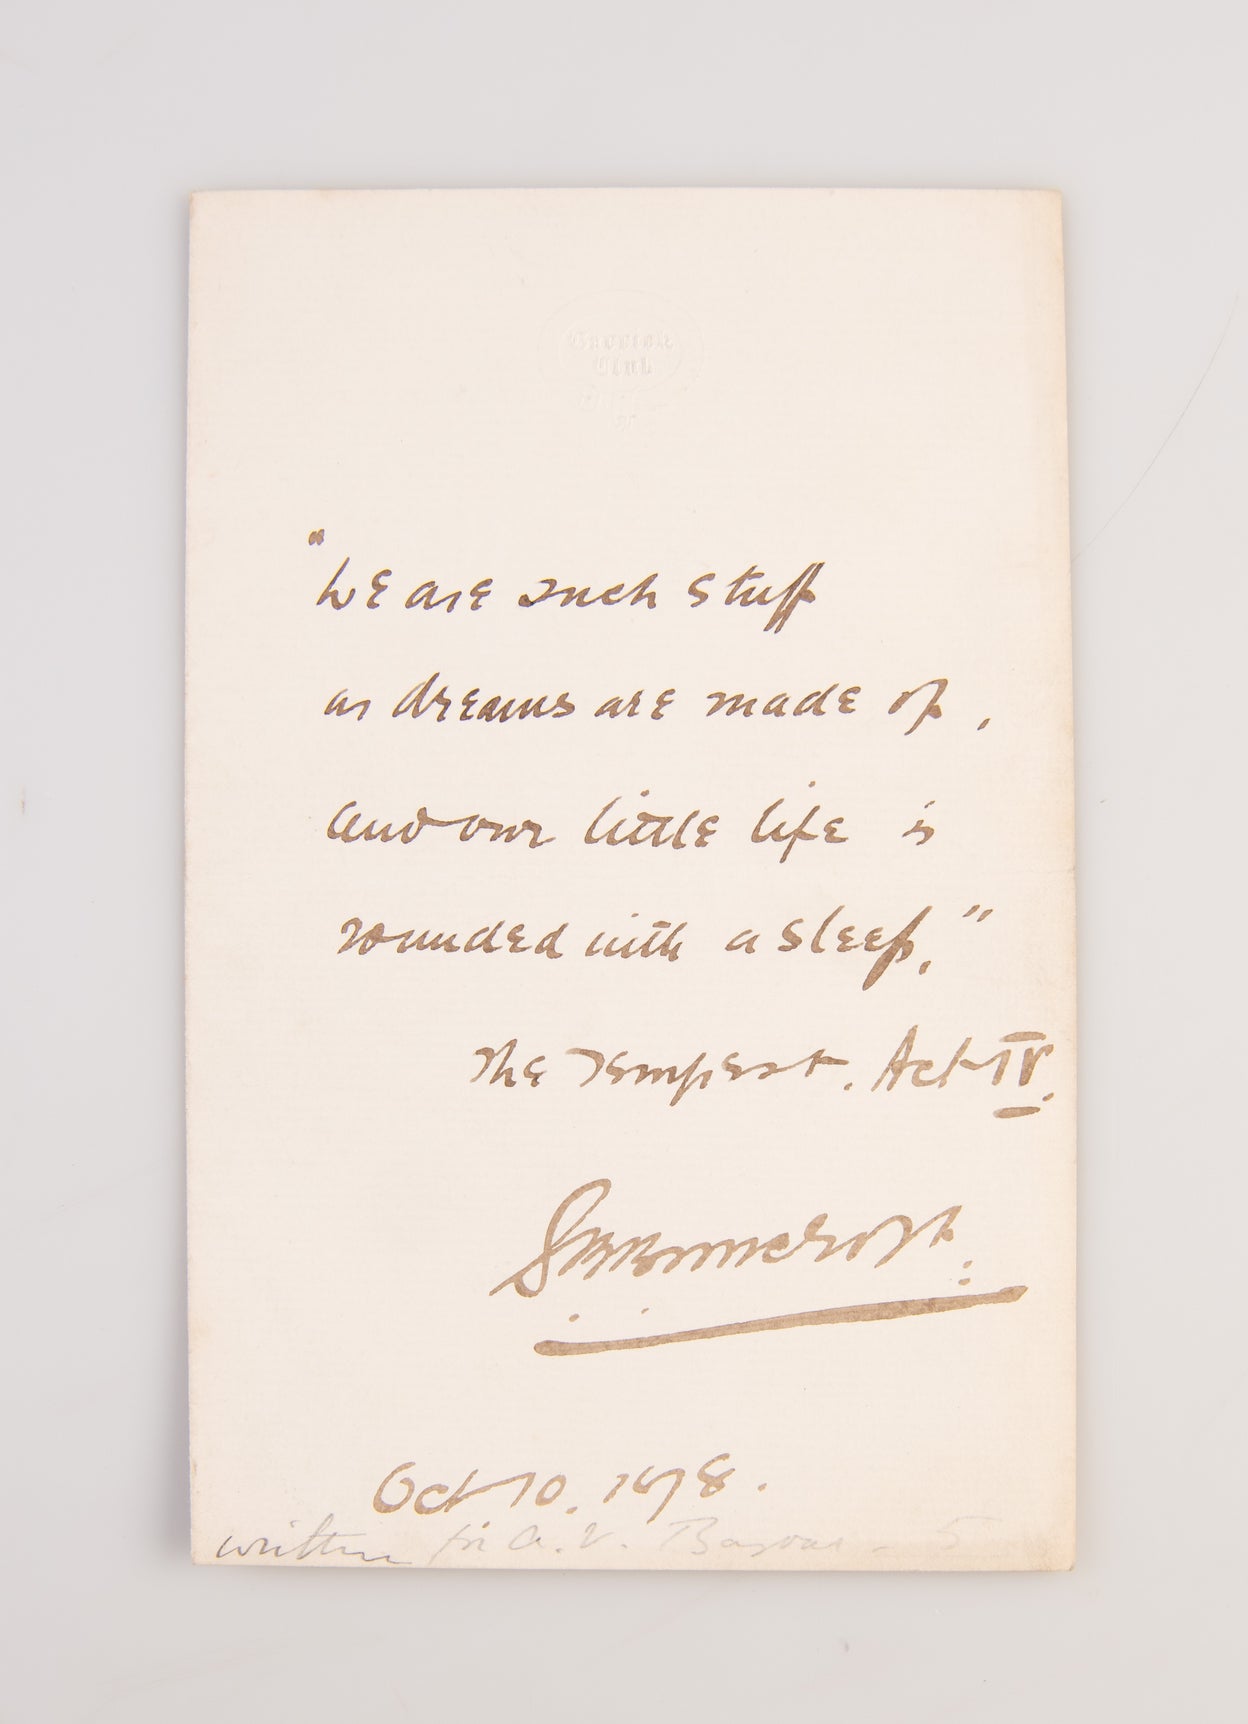 Garrick
Club
"We are such stuff
as dreams are made of,
and our little life is
rounded with a sleep."
The Tempest. Act IV.
S B Bancroft.
Oct 10. 1878.
written for A. V.